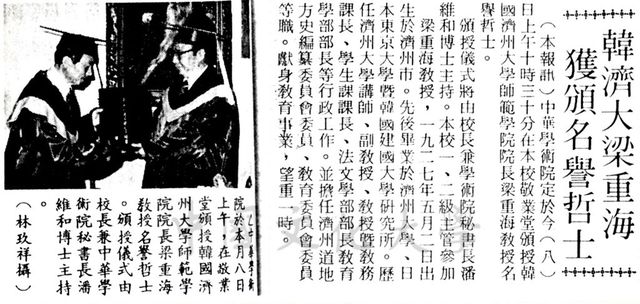 韓濟大梁重海
獲頒名譽哲士
（本報訊）中華學術院定於今（八）
日上午十時三十分在本校敬業堂頒授韓
國濟州大學師範學院院長梁重海教授名
譽哲士。
頒授儀式將由校長兼學術院秘書長潘
維和博士主持。本校一、二級主管參加
梁重海教授，一九二七年五月二日出
生於濟州市。先後畢業於濟州大學、日
本東京大學暨韓國建國大學研究所。歷
任濟州大學講師、副教授、教授暨教務
課長、學生課課長、法文學部部長教育
學部部長等行政工作。並擔任濟州道地
方史編纂委員會委員、教育委員會委員
等職。獻身教育事業，望重一時。
院於本月八日
上午，在敬業
堂頒授韓國濟
州大學師範學
院院長梁重海
教授名譽哲士
。頒授儀式由
校長兼中華學
術院秘書長潘
維和博士主持
。
（林玫祥攝）